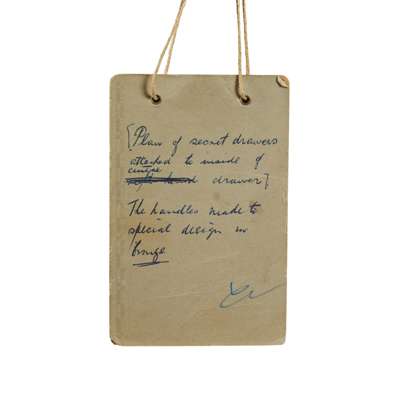 [Plan of secret drawers
attached to inside of
centre
right hand drawer]
The handles made to
special design in
bronze